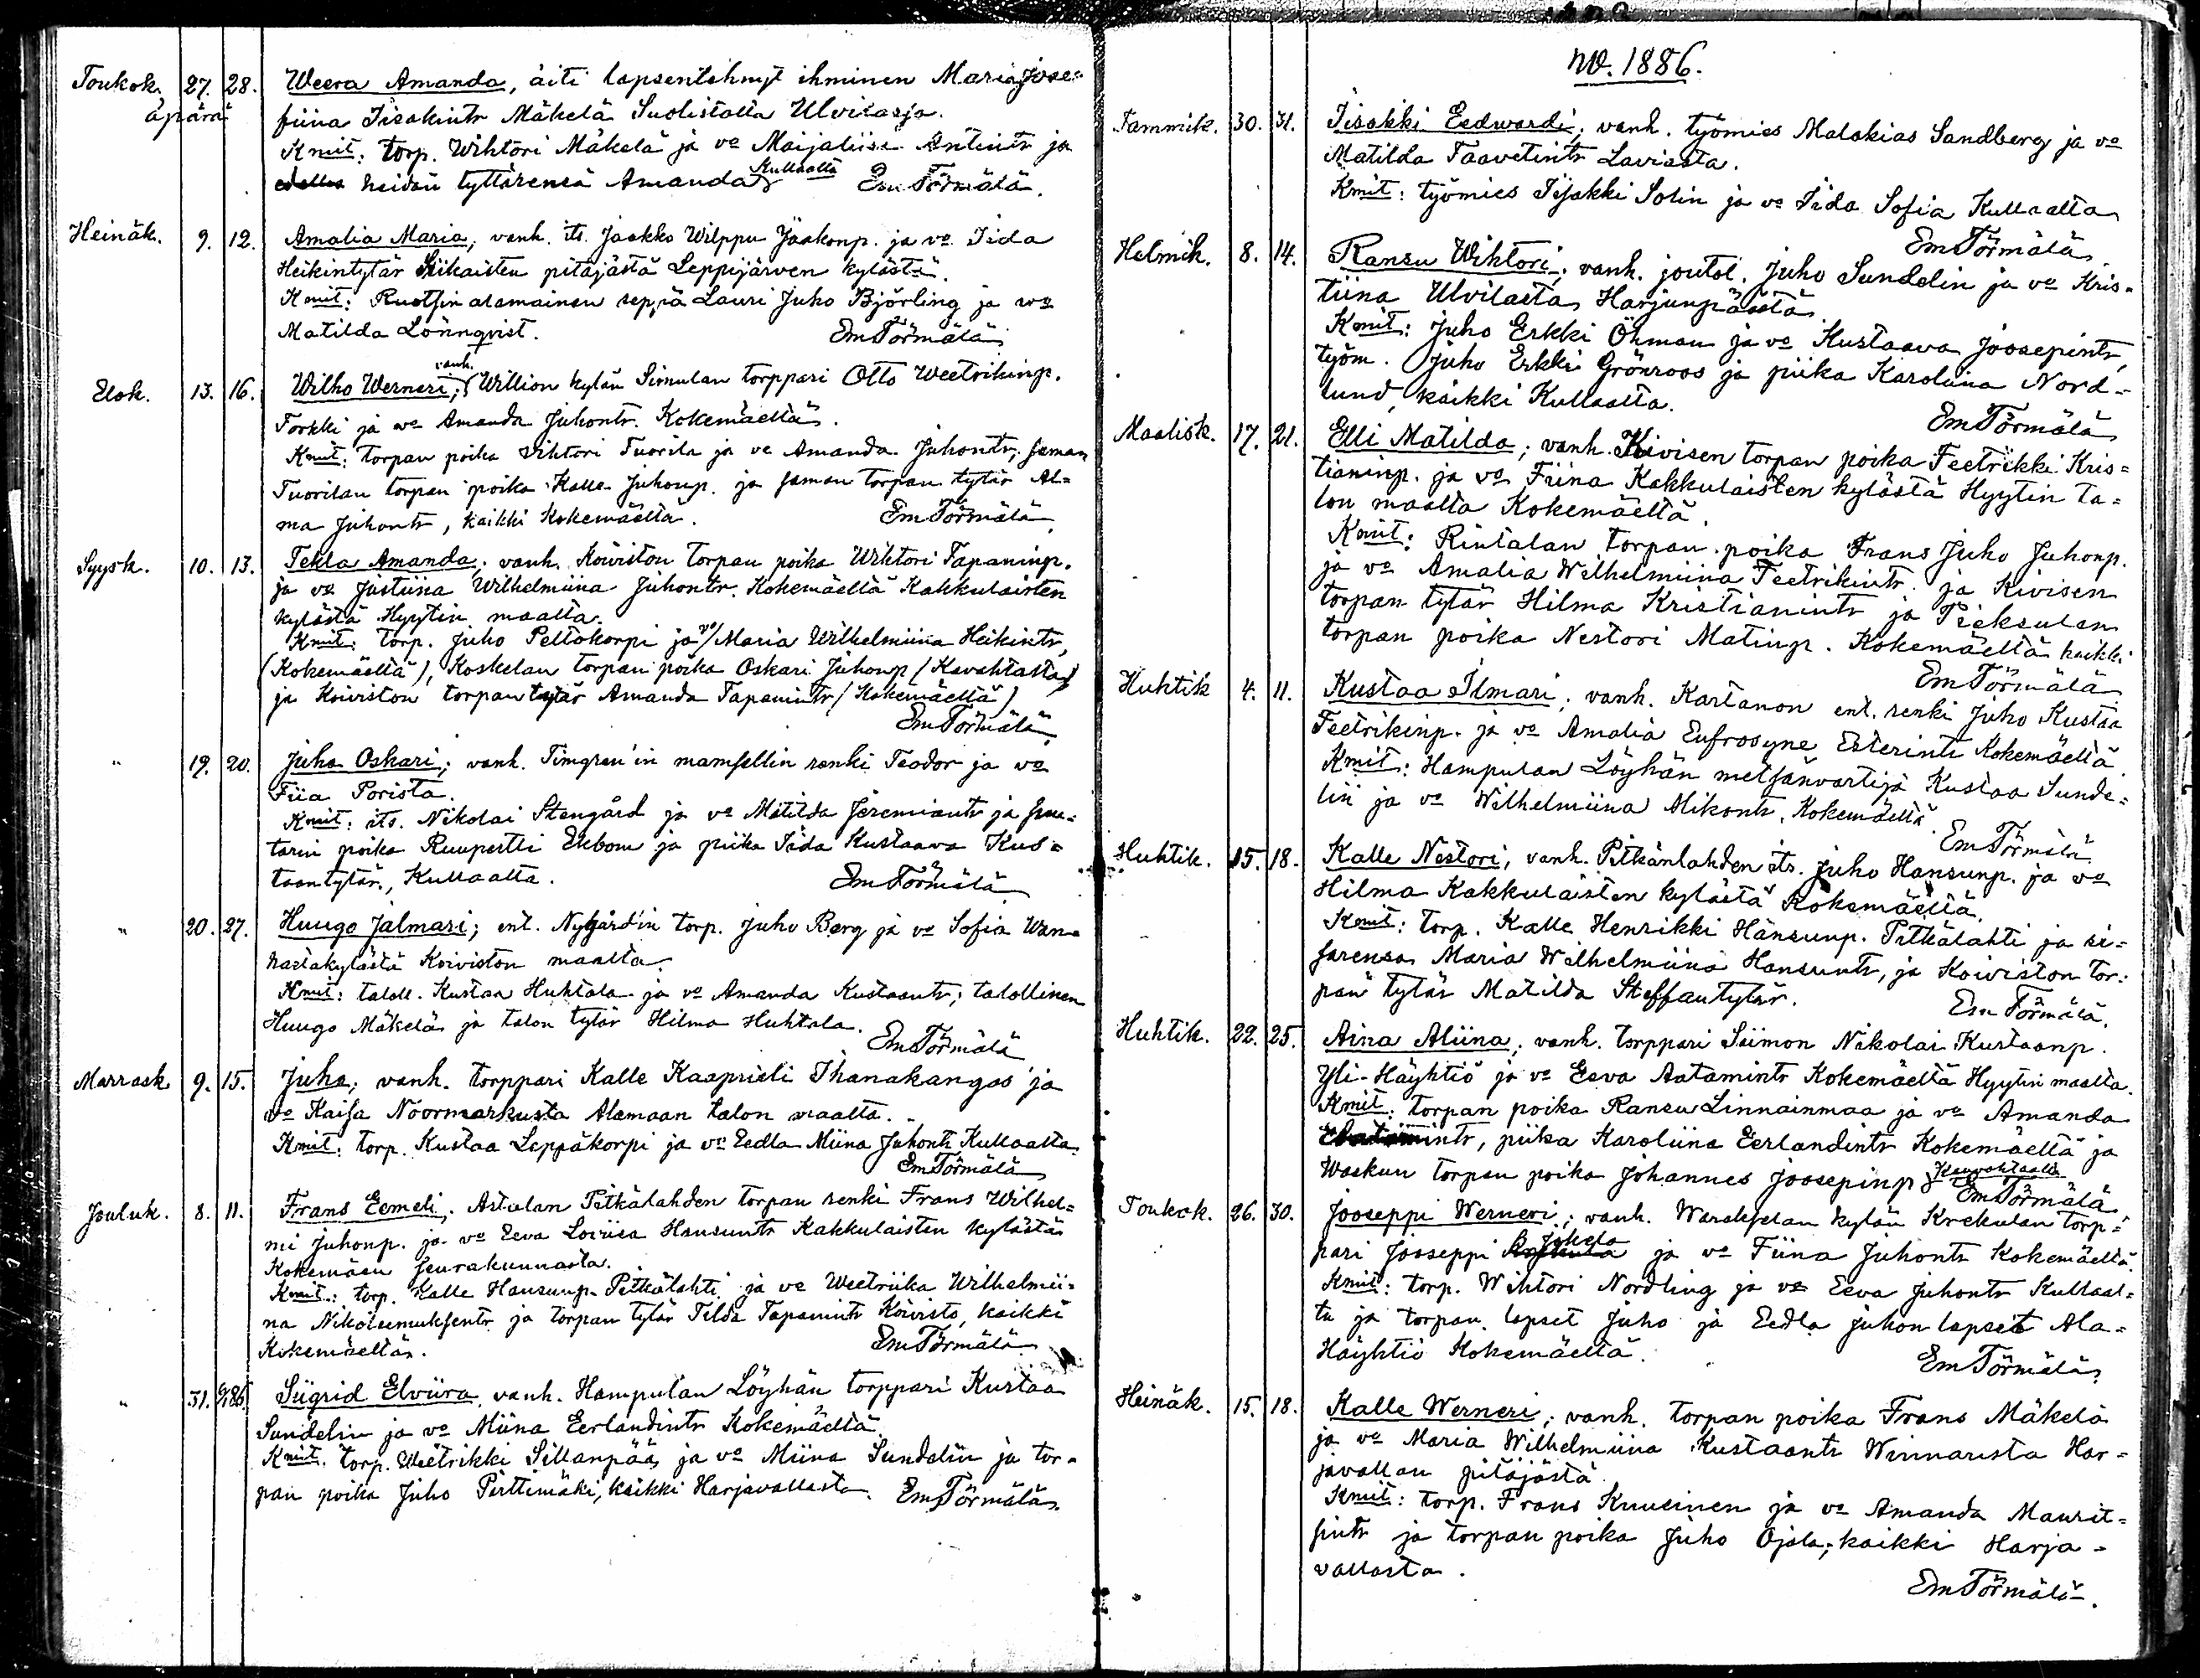 Toukok. 27. 28. Weera Amanda, äiti lapsentehnyt ihminen Maria Jose-
äpärä fiina Iisakintr Mäkelä Suolistalta Ulvilasja.
Kmit: torp. Wihtori Mäkelä ja vo Maijaliisa Antintr ja
heidän tyttärensä Amanda Kullaalta Em Törmälä.
Heinäk. 9. 12. Amalia Maria, vanh. its. Jaakko Wilppu Jaakonp. ja vo. Iida
Heikintytär Siikaisten pitäjästä Leppijärven kylästä.
Kmit: Ruotsin alamainen seppä Lauri Juho Björling ja wo
Matilda Lönnqvist. Em Törmälä
Elok. 13. 16. Wilho Werneri; vanh. Willion kylän Simulan torppari Otto Weetrikinp.
Torkki ja vo Amanda Juhontr. Kokemäeltä.
Kmit: torpan poika Vihtori Tuorila ja vo Amanda Juhontr, saman
Tuorilan torpan poika Kalle Juhonp. ja saman torpan tytär Al-
ma Juhontr, kaikki Kokemäeltä. Em Törmälä
Syysk. 10. 13. Tekla Amanda; vanh. Koiviston torpan poika Wihtori Tapaninp.
ja vo Justiina Wilhelmiina Juhontr. Kokemäeltä Kakkulaisten
kylästä Hyytin maalta.
Kmit: torp. Juho Peltokorpi ja vo/ Maria Wilhelmiina Heikintr,
(Kokemäeltä), Koskelan torpan poika Oskari Juhonp (Kavahtasta)
ja Koiviston torpan tytär Amanda Tapanintr (Kokemäeltä)
Em Törmälä
" 19. 20. Juho Oskari; vanh. Timgren'in mamsellin renki Teodor ja vo
Fiia Porista.
Kmit: its. Nikolai Stengård ja vo Matilda Jeremiantr ja
tarin poika Ruupertti Ekbom ja piika Iida Kustaava Kus-
taantytär, Kullaalta. Em Törmälä
" 20. 27. Huugo Jalmari; ent. Nygård'in torp. Juho Berg ja vo Sofia Wan-
hastakylästä Koiviston maalta.
Kmit: taloll. Kustaa Huhtala ja vo Amanda Kustaantr; talollinen
Huugo Mäkelä ja talon tytär Hilma Huhtala.
Em Törmälä
Marrask. 9. 15. Juho; vanh. torppari Kalle Kaaprieli Ihanakangas ja
vo Kaisa Noormarkusta Alamaan talon maalta.
Kmit: torp. Kustaa Leppäkorpi ja vo Eedla Miina Juhontr Kullaalta.
Em Törmälä
Jouluk. 8. 11. Frans Eemeli; Antulan Pitkälahden torpan renki Frans Wilhel-
mi Juhonp. ja vo Eeva Loviisa Hansuntr Kakkulaisten kylästä
Kokemäen seurakunnasta.
Kmit: torp. Kalle Hansunp. Pitkälahti ja vo Weetriika Wilhelmii-
na Nikoteemuksentr ja torpan tytär Tilda Tapanintr Koivisto, kaikki
Kokemäeltä. Em Törmälä
" 31. 6/1 86. Siigrid Elviira, vanh. Hampulan Löyhän torppari Kustaa
Sundelin ja vo Miina Eerlandintr Kokemäeltä.
Kmit. torp. Weetrikki Sillanpää ja vo Miina Sundelin ja tor-
pan poika Juho Pirttimäki, kaikki Harjavallasta. Em Törmälä
W. 1886.
Tammik. 30. 31. Iisakki Eedwardi; vanh. työmies Malakias Sandberg ja vo
Matilda Taavetintr Laviasta.
Kmit: työmies Iisakki Solin ja vo Iida Sofia Kullaalta
Em Törmälä
Helmik. 8. 14. Ransu Wihtori; vanh. joutol. Juho Sundelin ja vo Kris-
tiina Ulvilasta Harjunpäästä
Kmit: Juho Erkki Öhman ja vo Kustaava Joosepintr,
työm. Juho Erkki Grönroos ja piika Karoliina Nord-
lund, kaikki Kullaalta.
Em Törmälä
Maalisk. 17. 21. Elli Matilda; vanh. Kivisen torpan poika Feetrikki Kris-
tianinp. ja vo Fiina Kakkulaisten kylästä Hyytin ta-
lon maalta Kokemäeltä.
Kmit: Rintalan torpan poika Frans Juho Juhonp.
ja vo Amalia Wilhelmiina Feetrikintr. ja Kivisen
torpan tytär Hilma Kristianintr ja Pieksulan
torpan poika Nestori Matinp. Kokemäeltä kaikki
Em Törmälä
Huhtik 4. 11. Kustaa Ilmari; vanh. Kartanon ent. renki Juho Kustaa
Feetrikinp. ja vo Amalia Eufrosyne Esterintr Kokemäeltä
Kmit: Hampulan Löyhän metsänvartija Kustaa Sunde-
lin ja vo Wilhelmiina Mikontr. Kokemäeltä.
Em Törmälä
Huhtik. 15. 18. Kalle Nestori, vanh. Pitkänlahden its. Juho Hansunp. ja vo
Hilma Kakkulaisten kylästä Kokemäeltä.
Kmit: torp. Kalle Henrikki Hansunp. Pitkälahti ja si-
sarensa Maria Wilhelmiina Hansuntr, ja Koiviston tor-
pan tytär Matilda Steffantytär.
Em Törmälä.
Huhtik. 22. 25. Aina Aliina; vanh. torppari Siimon Nikolai Kustaanp.
Yli-Häyhtiö ja vo Eeva Aatamintr Kokemäeltä Hyytin maalta.
Kmit: torpan poika Ransu Linnainmaa ja vo Amanda
intr, piika Karoliina Eerlandintr Kokemäeltä ja
Waskun torpan poika Johannes Joosepinp Kauvahtaalta
Em Törmälä
Toukok. 26. 30. Jooseppi Werneri; vanh. Warakselan kylän Krekulan torp-
pari Jooseppi Jokela ja vo Fiina Juhontr Kokemäeltä.
Kmit: torp. Wihtori Nordling ja vo Eeva Juhontr Kullaal-
ta ja torpan lapset Juho ja Eedla Juhon lapset Ala-
Häyhtiö Kokemäeltä.
Em Törmälä
Heinäk. 15. 18. Kalle Werneri; vanh. torpan poika Frans Mäkelä
ja vo Maria Wilhelmiina Kustaantr Winnarista Har-
javallan pitäjästä.
Kmit: torp. Frans Kuusinen ja vo Amanda Maurit-
sintr ja torpan poika Juho Ojala; kaikki Harja-
vallasta.
Em Törmälä.